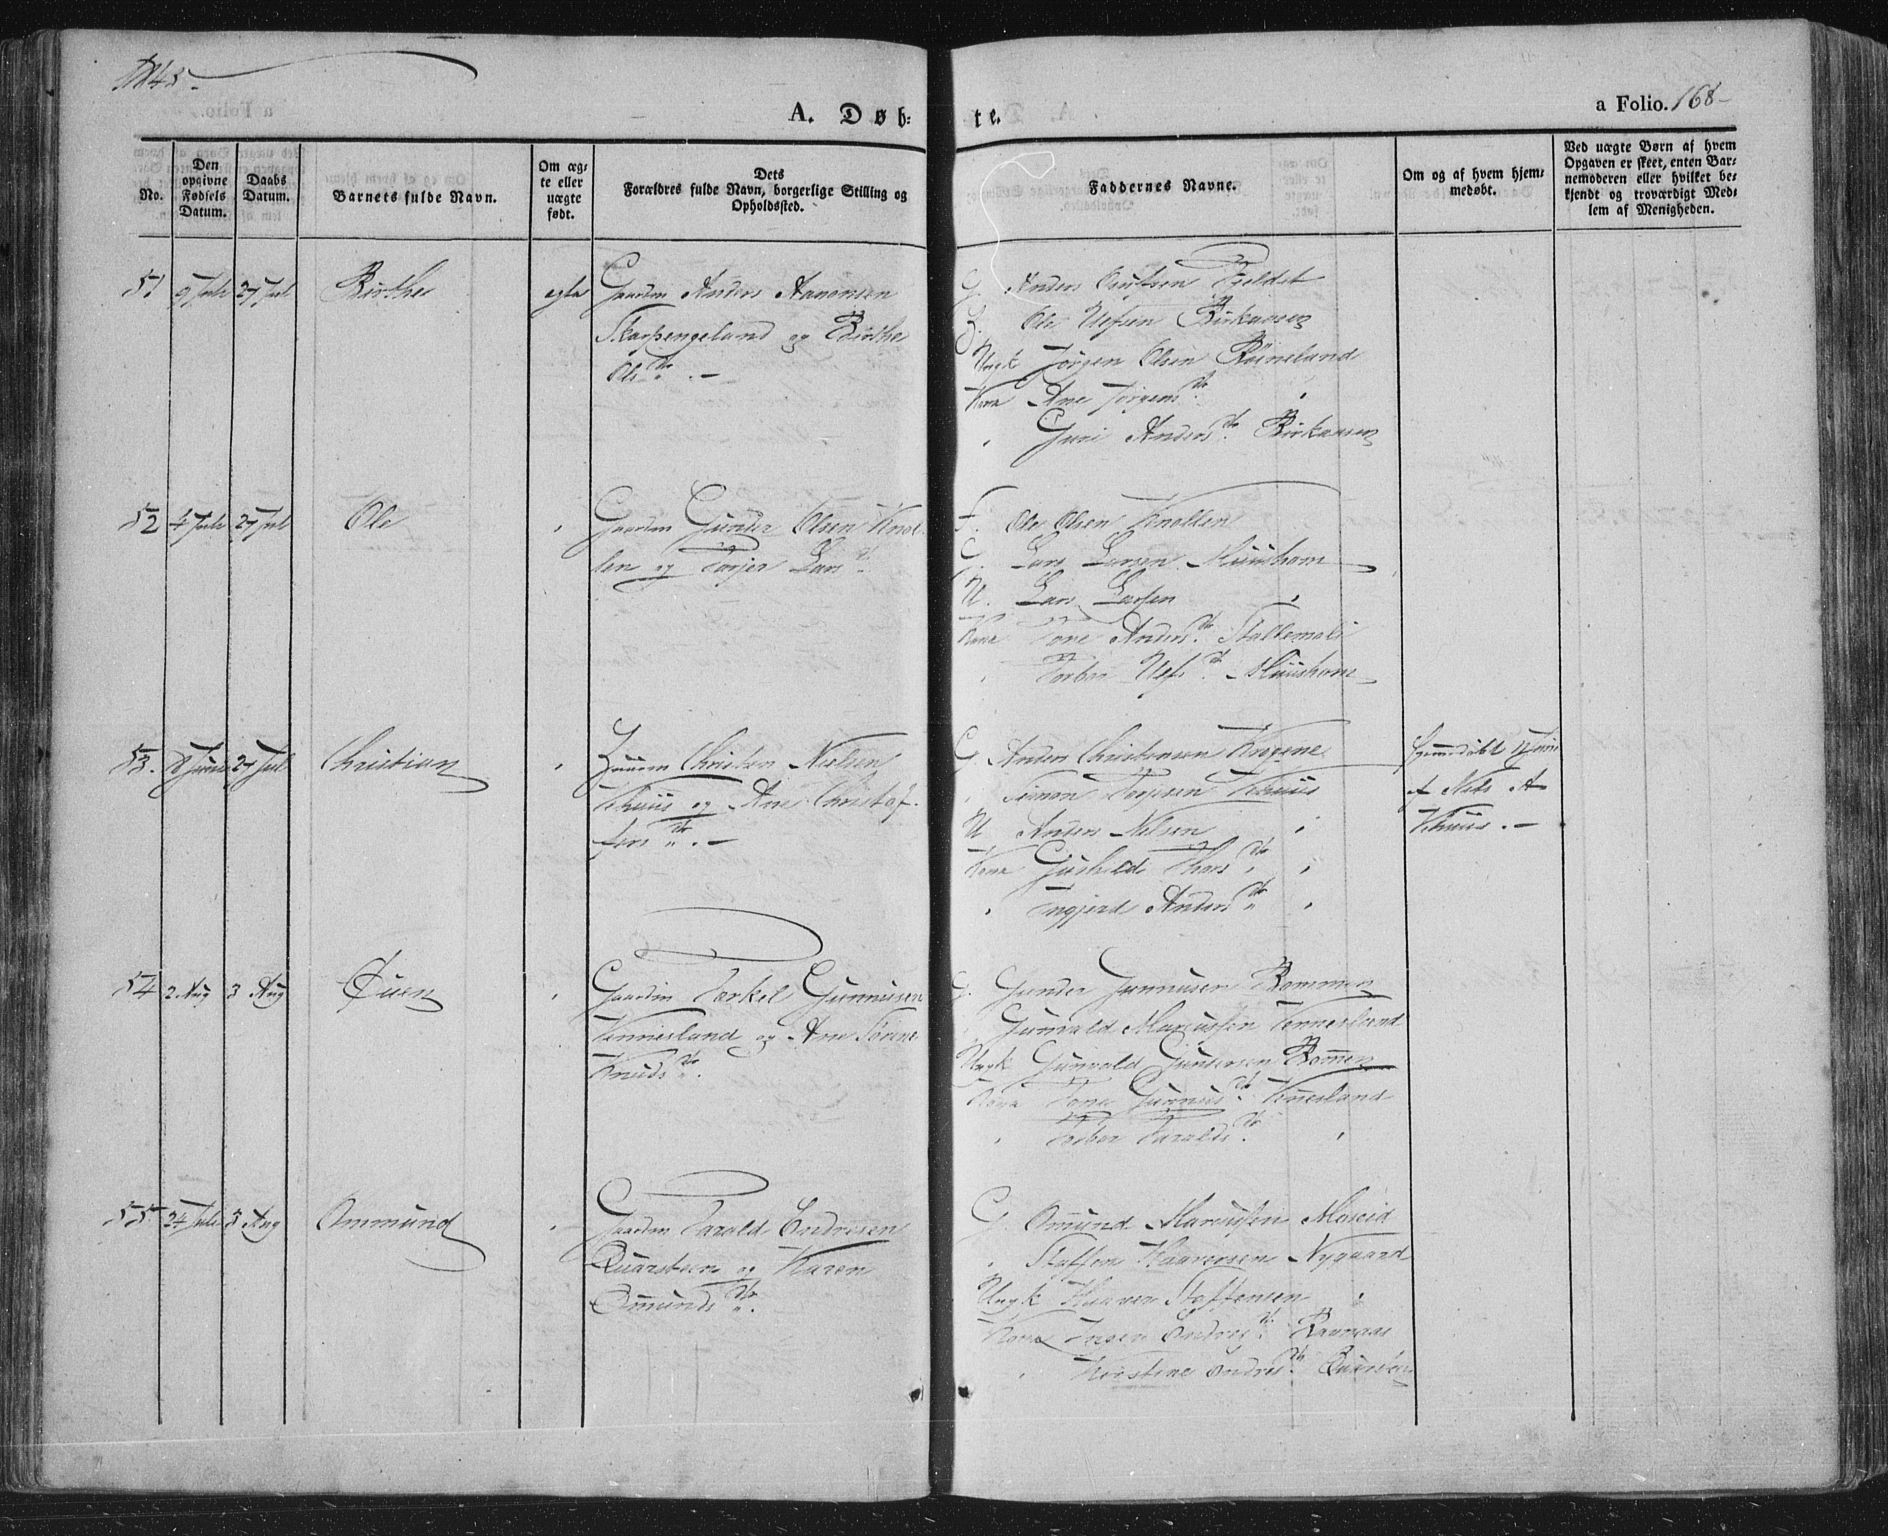 1845.
A. Døb= te.
a Folio. 168
No.
Den opgivne Fødsels Datum.
Daabs Datum.
Barnets fulde Navn.
Om æg-te eller uægte født.
Dets Forældres fulde Navn, borgerlige Stilling og Opholdssted.
Faddernes Navne.
Om og af hvem hjem-medøbt.
Ved uægte Børn af hvem Opgaven er skeet, enten Bar-nemoderen eller hvilket be-kjendt og troværdigt Med-lem af Menigheden.
51 9 Juli 27 Jul Birthe egte Gaardm Anders Aanonsen
Skarpengeland og Birthe
Ols dtr. -
G. Anders Knutsen Fjeldet
Ole Uefsen Birkenes
Ungk Jörgen Olsen Röineland
Kone Ane Jörgens dtr. "
" Guri Anders dtr. Birkenes
52 4 Juli 27 Jul Ole " Gaardm Gunder Olsen Knol
len og Torjer Lars dtr.
F. Ole Olsen Knollen
G. Lars Larsen Muushom
U. Lars Larsen "
Kone Tone Anders dtr. Stallemoli
" Torbor Uefs dtr. Muushom
53. 8 Juni 27 Jul Christian " Huusm Christen Nielsen
Kehuus og Ane Christof-
fers dtr. -
G. Anders Christensen Kragene
" Simon Torjusen Kehuus
U Anders Nielsen "
Kone Gunhild Thors dtr. "
" Ingjerd Anders dtr. "
hjemmedöbt Juni
af Niels A
Kehuus. -
54 2 Aug 3 Aug Öuen " Gaardm Terkel Gunnusen
Kennesland og Ane Tonne
Knuds dtr.
G. Gunder Gunnusen Rommen
" Gunvald Marcussen Kennesland
Ungk Gunvald Gundersen Rommen
Kone Tone Gunnus dtr. Kennesland
" Torbor Taralds dtr. "
55 24 Juli 3 Aug Ommund " Gaardm Tarald Endresen
Quarsten og Karen
Omunds dtr.
G. Omund Marcussen Moseid
" Staffen Haaversen Nygaard
Ungk Haaver Staffensen "
Kone Inger Endres dtr. Ravnaas
" Kirstine Endres dtr. Quarsten